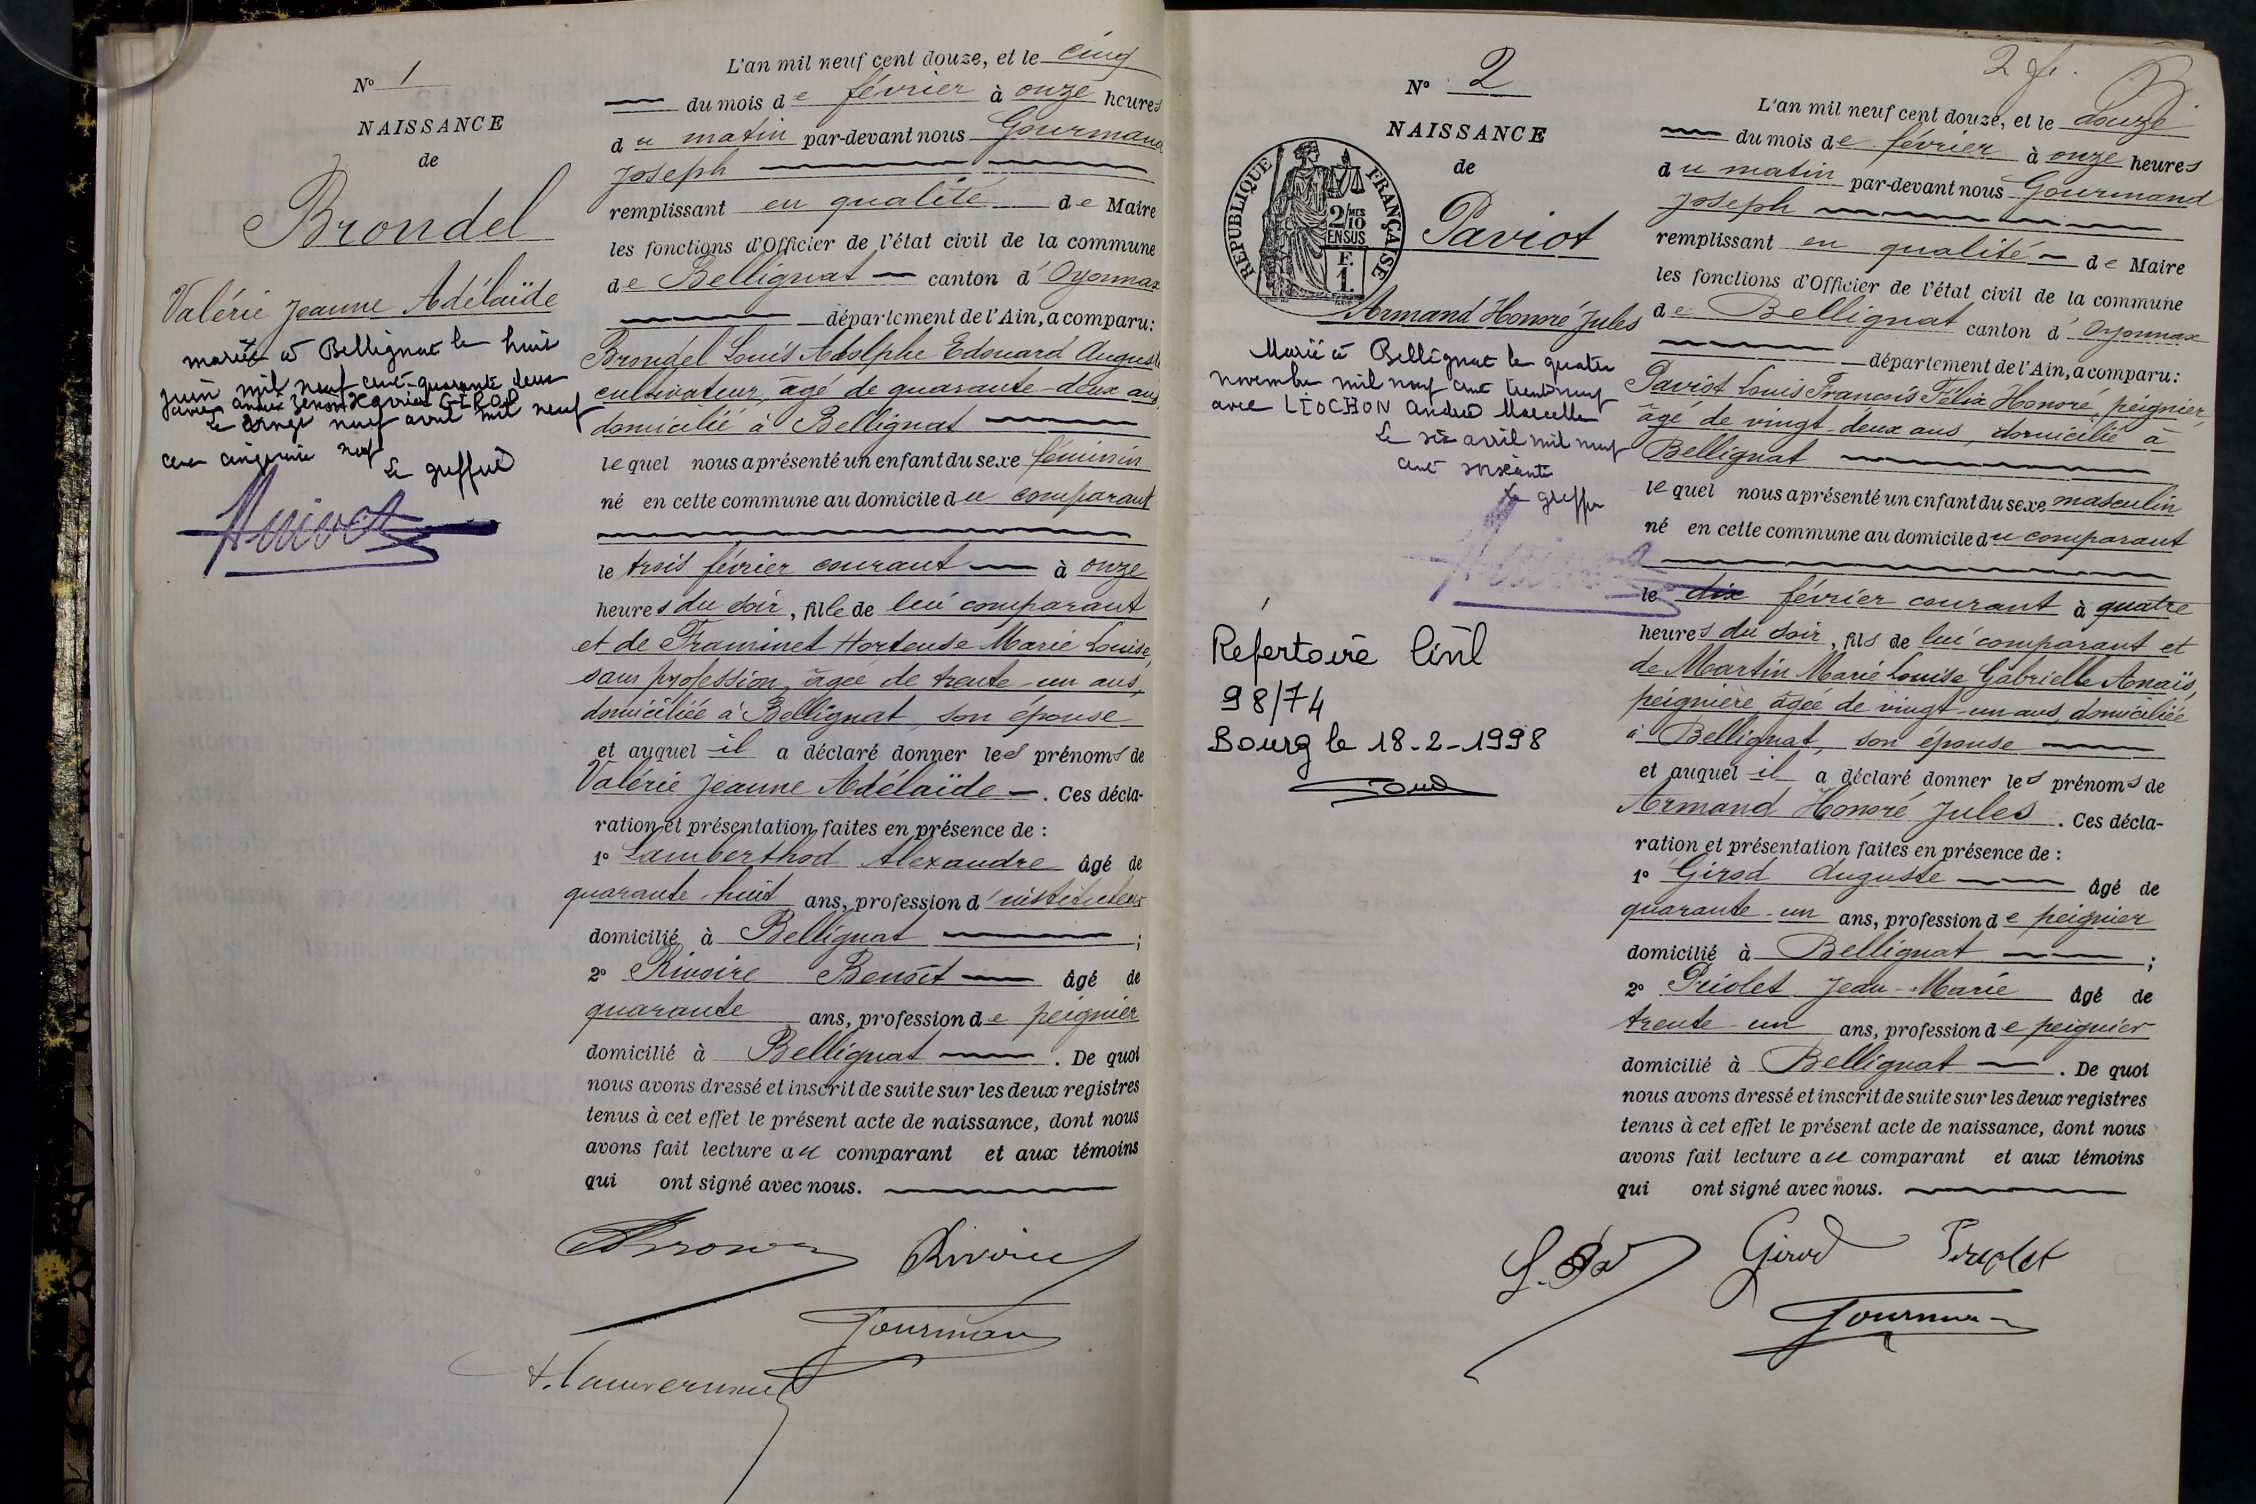 N° 1
NAISSANCE
de
Brondel
Valérie Jeanne Adélaïde
mariée à Bellignat le huit
juin mil neuf cent quarante deux
avec André Zénon Xavier GIROD
Le vingt neuf avril mil neuf
cent cinquante neuf
Le greffier
L'an mil neuf cent douze, et le cinq
du mois de février à onze heures
du matin par-devant nous Gourmand
Joseph
remplissant en qualité de Maire
les fonctions d'Officier de l'état civil de la commune
de Bellignat canton d'Oyonnax
département de l'Ain, a comparu:
Brondel Louis Adolphe Edouard Auguste
cultivateur, âgé de quarante-deux ans,
domicilié à Bellignat
lequel nous a présenté un enfant du sexe féminin
né en cette commune au domicile du comparant
le trois février courant à onze
heures du soir, fille de lui comparant
et de Framinet Hortense Marie Louise,
sans profession, âgée de trente un ans,
domiciliée à Bellignat, son épouse
et auquel il a déclaré donner les prénoms de
Valérie Jeanne Adélaïde. Ces décla-
ration et présentation faites en présence de :
1° Lamberthod Alexandre âgé de
quarante-huit ans, profession d'instituteur
domicilié à Bellignat ;
2° Rivoire Benoît âgé de
quarante ans, profession de peignier
domicilié à Bellignat. De quoi
nous avons dressé et inscrit de suite sur les deux registres
tenus à cet effet le présent acte de naissance, dont nous
avons fait lecture au comparant et aux témoins
qui ont signé avec nous.
Rivoire
Gourmand
2 f.
N° 2
NAISSANCE
de
REPUBLIQUE FRANÇAISE
2/10 MES
EN SUS
F.
1.
Paviot
Armand Honoré Jules
Marié à Bellignat le quatre
novembre mil neuf cent trente neuf
avec LIOCHON Andrée Marcelle
Le six avril mil neuf
cent soixante
Le greffier
Répertoire Civil
98/74
Bourg le 18-2-1998
L'an mil neuf cent douze, et le douze
du mois de février à onze heures
du matin par-devant nous Gourmand
Joseph
remplissant en qualité de Maire
les fonctions d'Officier de l'état civil de la commune
de Bellignat canton d'Oyonnax
département de l'Ain, a comparu:
Paviot Louis François Félix Honoré, peignier,
âgé de vingt-deux ans, domicilié à
Bellignat
lequel nous a présenté un enfant du sexe masculin
né en cette commune au domicile du comparant
le dix février courant à quatre
heures du soir, fils de lui comparant et
de Martin Marie Louise Gabrielle Anaïs,
peignière, âgée de vingt-un ans, domiciliée
à Bellignat, son épouse
et auquel il a déclaré donner les prénoms de
Armand Honoré Jules. Ces décla-
ration et présentation faites en présence de :
1° Girod Auguste âgé de
quarante-un ans, profession de peignier
domicilié à Bellignat ;
2° Priolet Jean-Marie âgé de
trente-un ans, profession de peignier
domicilié à Bellignat. De quoi
nous avons dressé et inscrit de suite sur les deux registres
tenus à cet effet le présent acte de naissance, dont nous
avons fait lecture au comparant et aux témoins
qui ont signé avec nous.
Girod Priolet
Gourmand